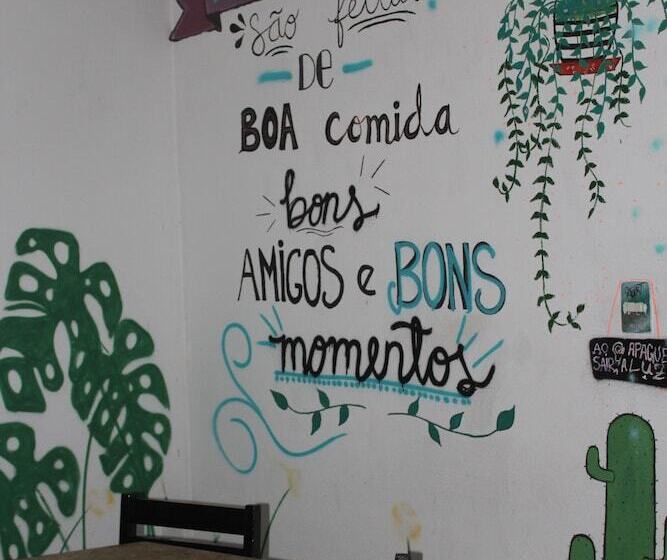 são feitas
DE
BOA comida
bons
AMIGOS e BONS
momentos
AO @ APAGUE
SAIR, A LUZ